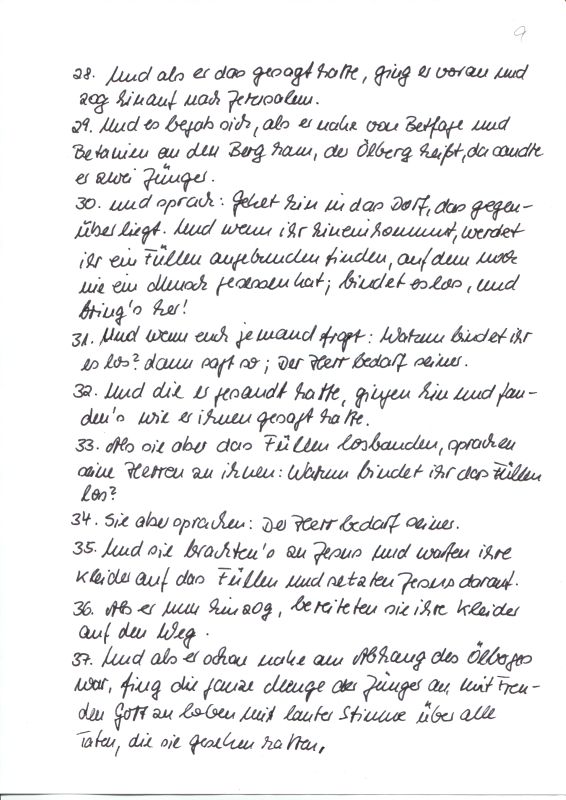 9
28. Und als er das gesagt hatte, ging er voran und
zog hinauf nach Jerusalem.
29. Und es begab sich, als er nahe von Betfage und
Betanien an den Berg kam, der Ölberg heißt, da sandte
er zwei Jünger.
30. und sprach: Gehet hin in das Dorf, das gegen-
überliegt. Und wenn ihr hineinkommt, werdet
ihr ein Füllen angebunden finden, auf dem noch
nie ein Mensch gesessen hat; bindet es los, und
bring's her!
31. Und wenn euch jemand fragt: Warum bindet ihr
es los? dann sagt so; Der Herr bedarf seiner.
32. Und die er gesandt hatte, gingen hin und fan-
den's wie er ihnen gesagt hatte.
33. Als sie aber das Füllen losbanden, sprachen
seine Herren zu ihnen: Warum bindet ihr das Füllen
los?
34. Sie aber sprachen: Der Herr bedarf seiner.
35. Und sie brachten's zu Jesus und warfen ihre
Kleider auf das Füllen und setzten Jesus darauf.
36. Als er nun hinzog, bereiteten sie ihre Kleider
auf den Weg.
37. Und als er schon nahe am Abhang des Ölberges
war, fing die ganze Menge der Jünger an, mit Freu-
den Gott zu loben mit lauter Stimme über alle
Taten, die sie gesehen hatten,